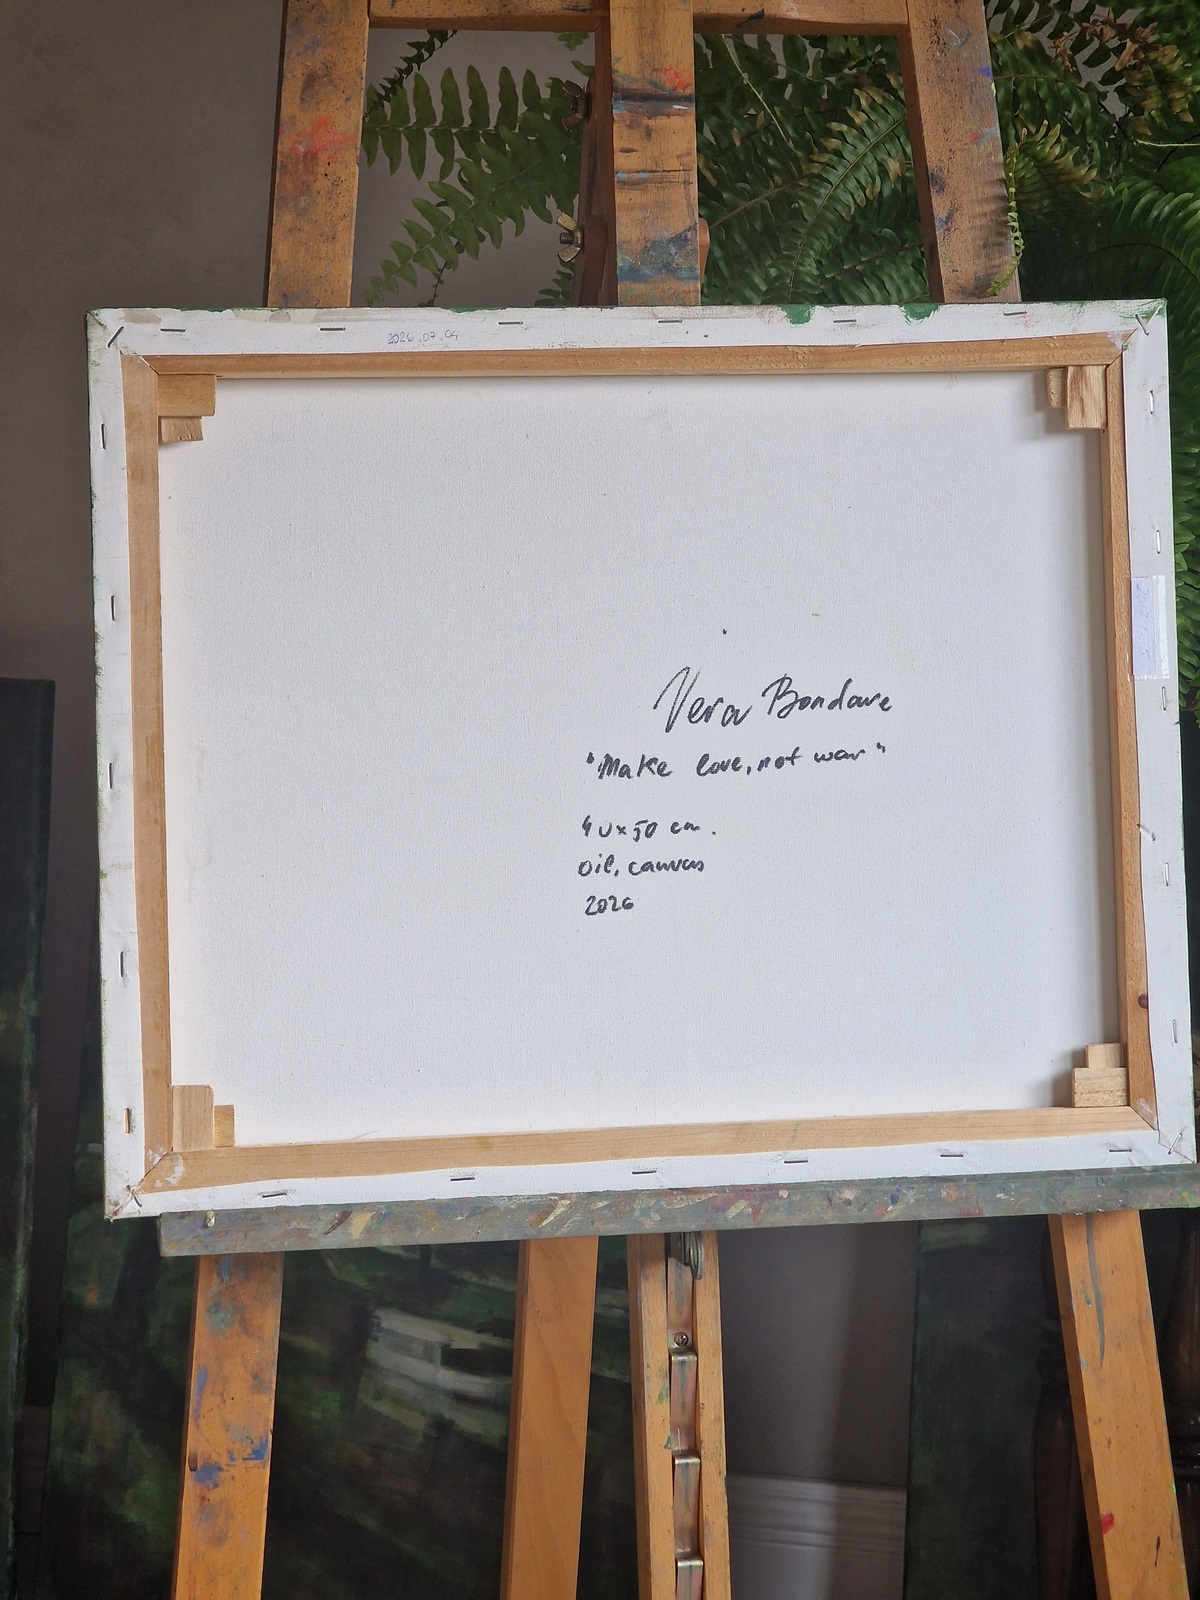 2026.07.04
Vera Bondare
"Make love, not war"
40x50 cm.
oil, canvas
2026